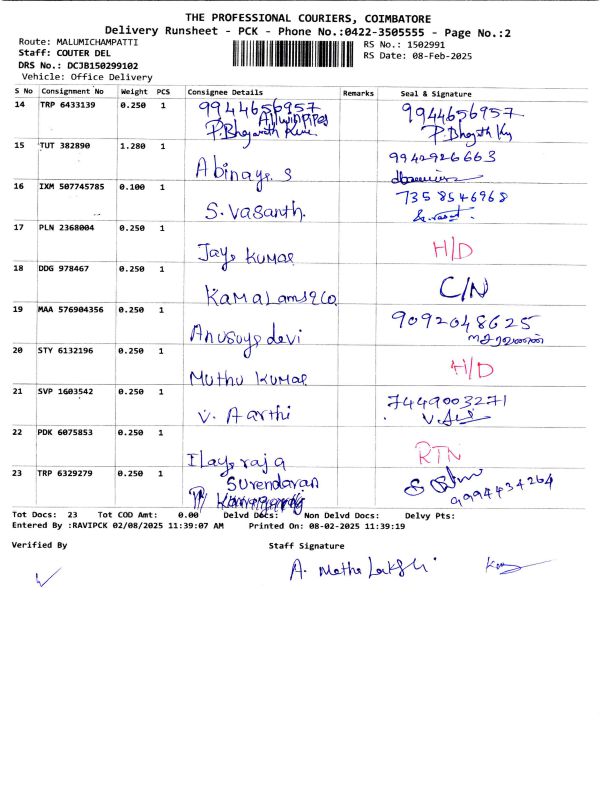 THE PROFESSIONAL COURIERS, COIMBATORE
Delivery Runsheet - PCK - Phone No.:0422-3505555 - Page No.:2
Route: MALUMICHAMPATTI
RS No.: 1502991
Staff: COUTER DEL
RS Date: 08-Feb-2025
DRS No.: DCJB150299102
Vehicle: Office Delivery
S No Consignment No Weight PCS Consignee Details Remarks Seal & Signature
14 TRP 6433139 0.250 1 9944656957 9944656957
15 TUT 382890 1.280 1 Abinaya S 9942926663
16 IXM 507745785 0.100 1 S. Vasanth. 7358546968
17 PLN 2368004 0.250 1 Jaya Kumar H/D
18 DDG 978467 0.250 1 Kamalam &Co C/N
19 MAA 576904356 0.250 1 Anusuya devi 9092048625
20 STY 6132196 0.250 1 Muthu Kumar H/D
21 SVP 1603542 0.250 1 V. Aarthi 7449003271
22 PDK 6075853 0.250 1 Ilaya raja RTN
23 TRP 6329279 0.250 1 Surendaran 9994434264
Tot Docs: 23 Tot COD Amt: 0.00 Delvd Docs: Non Delvd Docs: Delvy Pts:
Entered By :RAVIPCK 02/08/2025 11:39:07 AM Printed On: 08-02-2025 11:39:19
Verified By Staff Signature